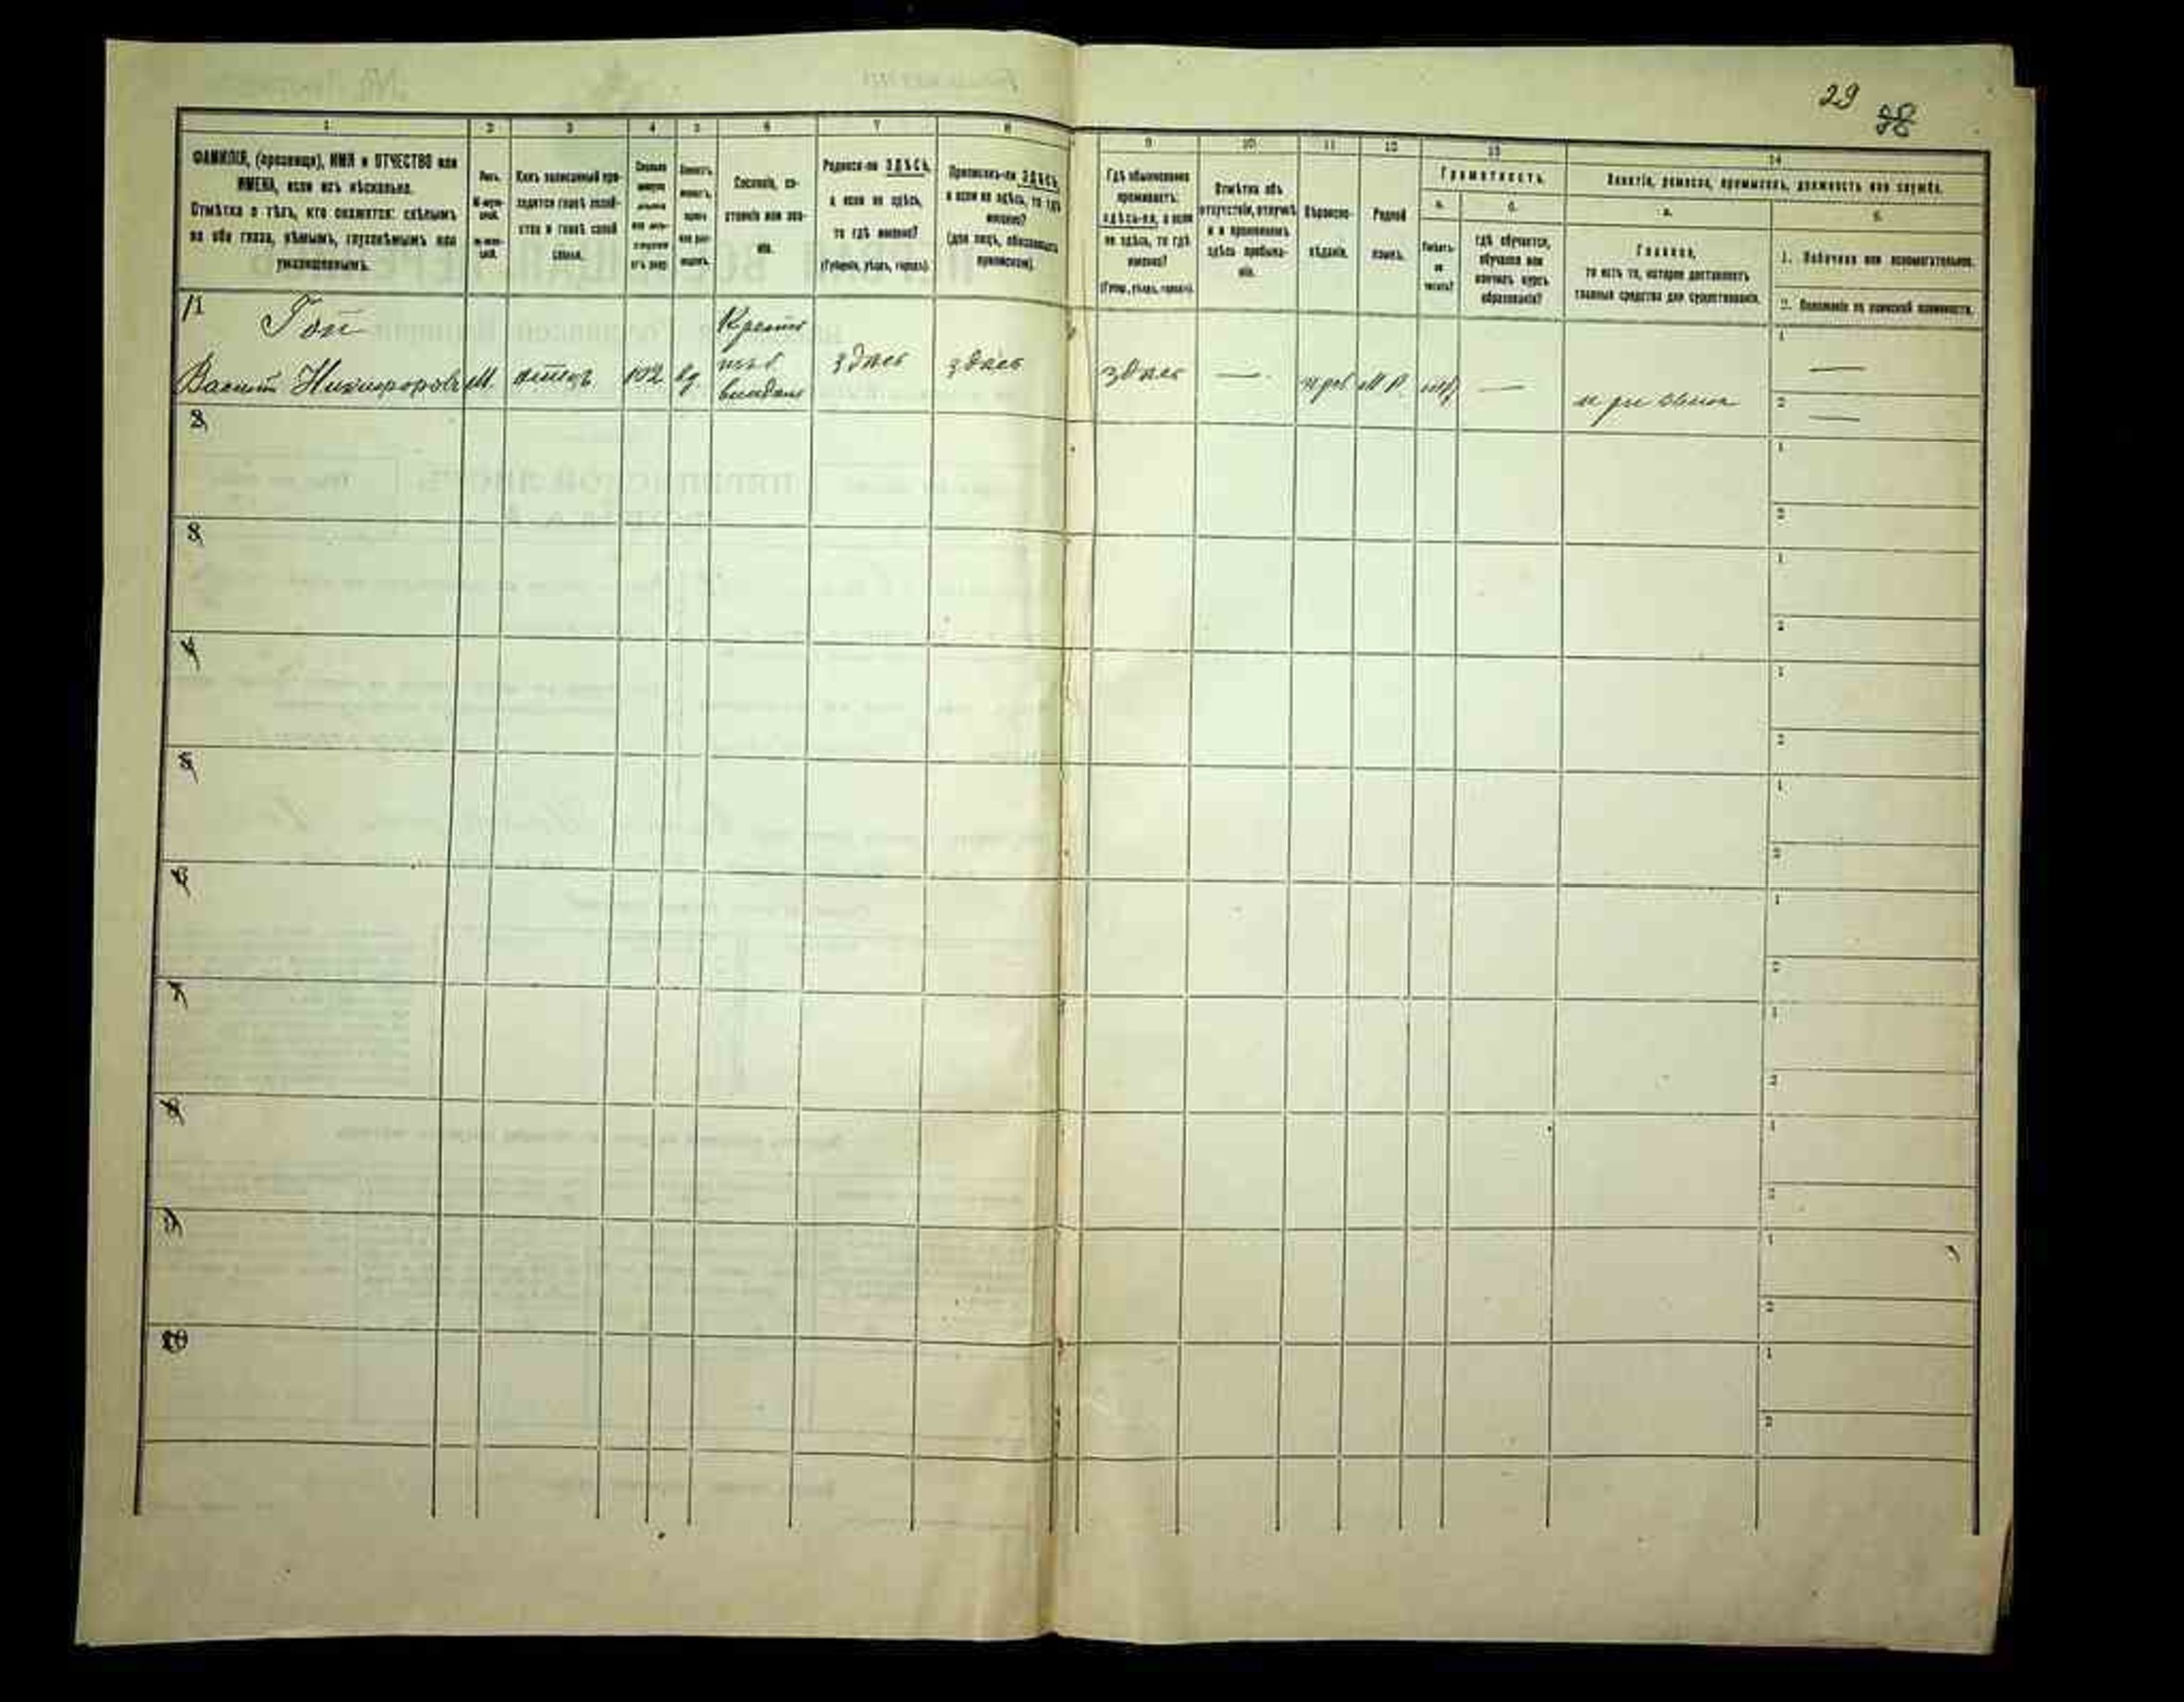 29
38
1 2 3 4 5 6 7 8 9 10 11 12 13 14
ФАМИЛІЯ, (прозвище), ИМЯ и ОТЧЕСТВО или
ИМЕНА, если ихъ нѣсколько.
Отмѣтка о тѣхъ, кто окажется: слѣпымъ
на оба глаза, нѣмымъ, глухонѣмымъ или
умалишеннымъ.
Полъ.
М-муж-
ской.
Ж-жен-
скій.
Какъ записанный при-
ходится главѣ хозяй-
ства и главѣ своей
семьи.
Сколько
минуло
лѣтъ
Холостъ,
женатъ,
вдовъ
Сословіе, со-
стояніе или зва-
ніе.
Родился-ли ЗДѢСЬ,
а если не здѣсь,
то гдѣ именно?
(Губернія, уѣздъ, городъ).
Приписанъ-ли ЗДѢСЬ,
а если не здѣсь, то гдѣ
именно?
(для лицъ, обязанныхъ
припиской).
Гдѣ обыкновенно
проживаетъ:
здѣсь-ли, а если
не здѣсь, то гдѣ
именно?
(Губер., уѣздъ, городъ).
Отмѣтка объ
отсутствіи, отлучкѣ
и о временномъ
здѣсь пребыва-
ніи.
Вѣроиспо-
вѣданіе.
Родной
языкъ.
Грамотность.
а. б.
Умѣетъ-
ли
читать?
гдѣ обучается,
обучался или
кончилъ курсъ
образованія?
Занятіе, ремесло, промыселъ, должность или служба.
а. б.
Главное,
то есть то, которое доставляетъ
главныя средства для существованія.
1. Побочное или вспомогательное.
2. Положеніе по воинской повинности.
1
Гой
Василій Никифоровъ М. отецъ 102 вд. здѣсь здѣсь здѣсь — прав М.Р. — —
1
2 —
2
1
2
3
1
2
4
1
2
5
1
2
6
1
2
7
1
2
8
1
2
9
1
2
10
1
2